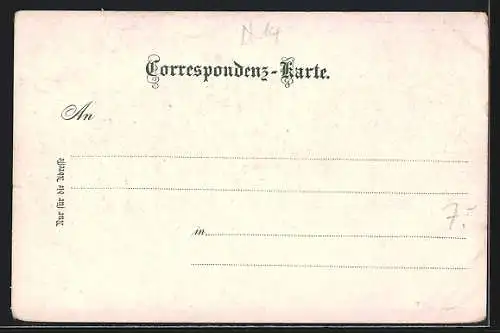 N 14
Correspondenz-Karte.
An
Nur für die Adresse
in
7.-